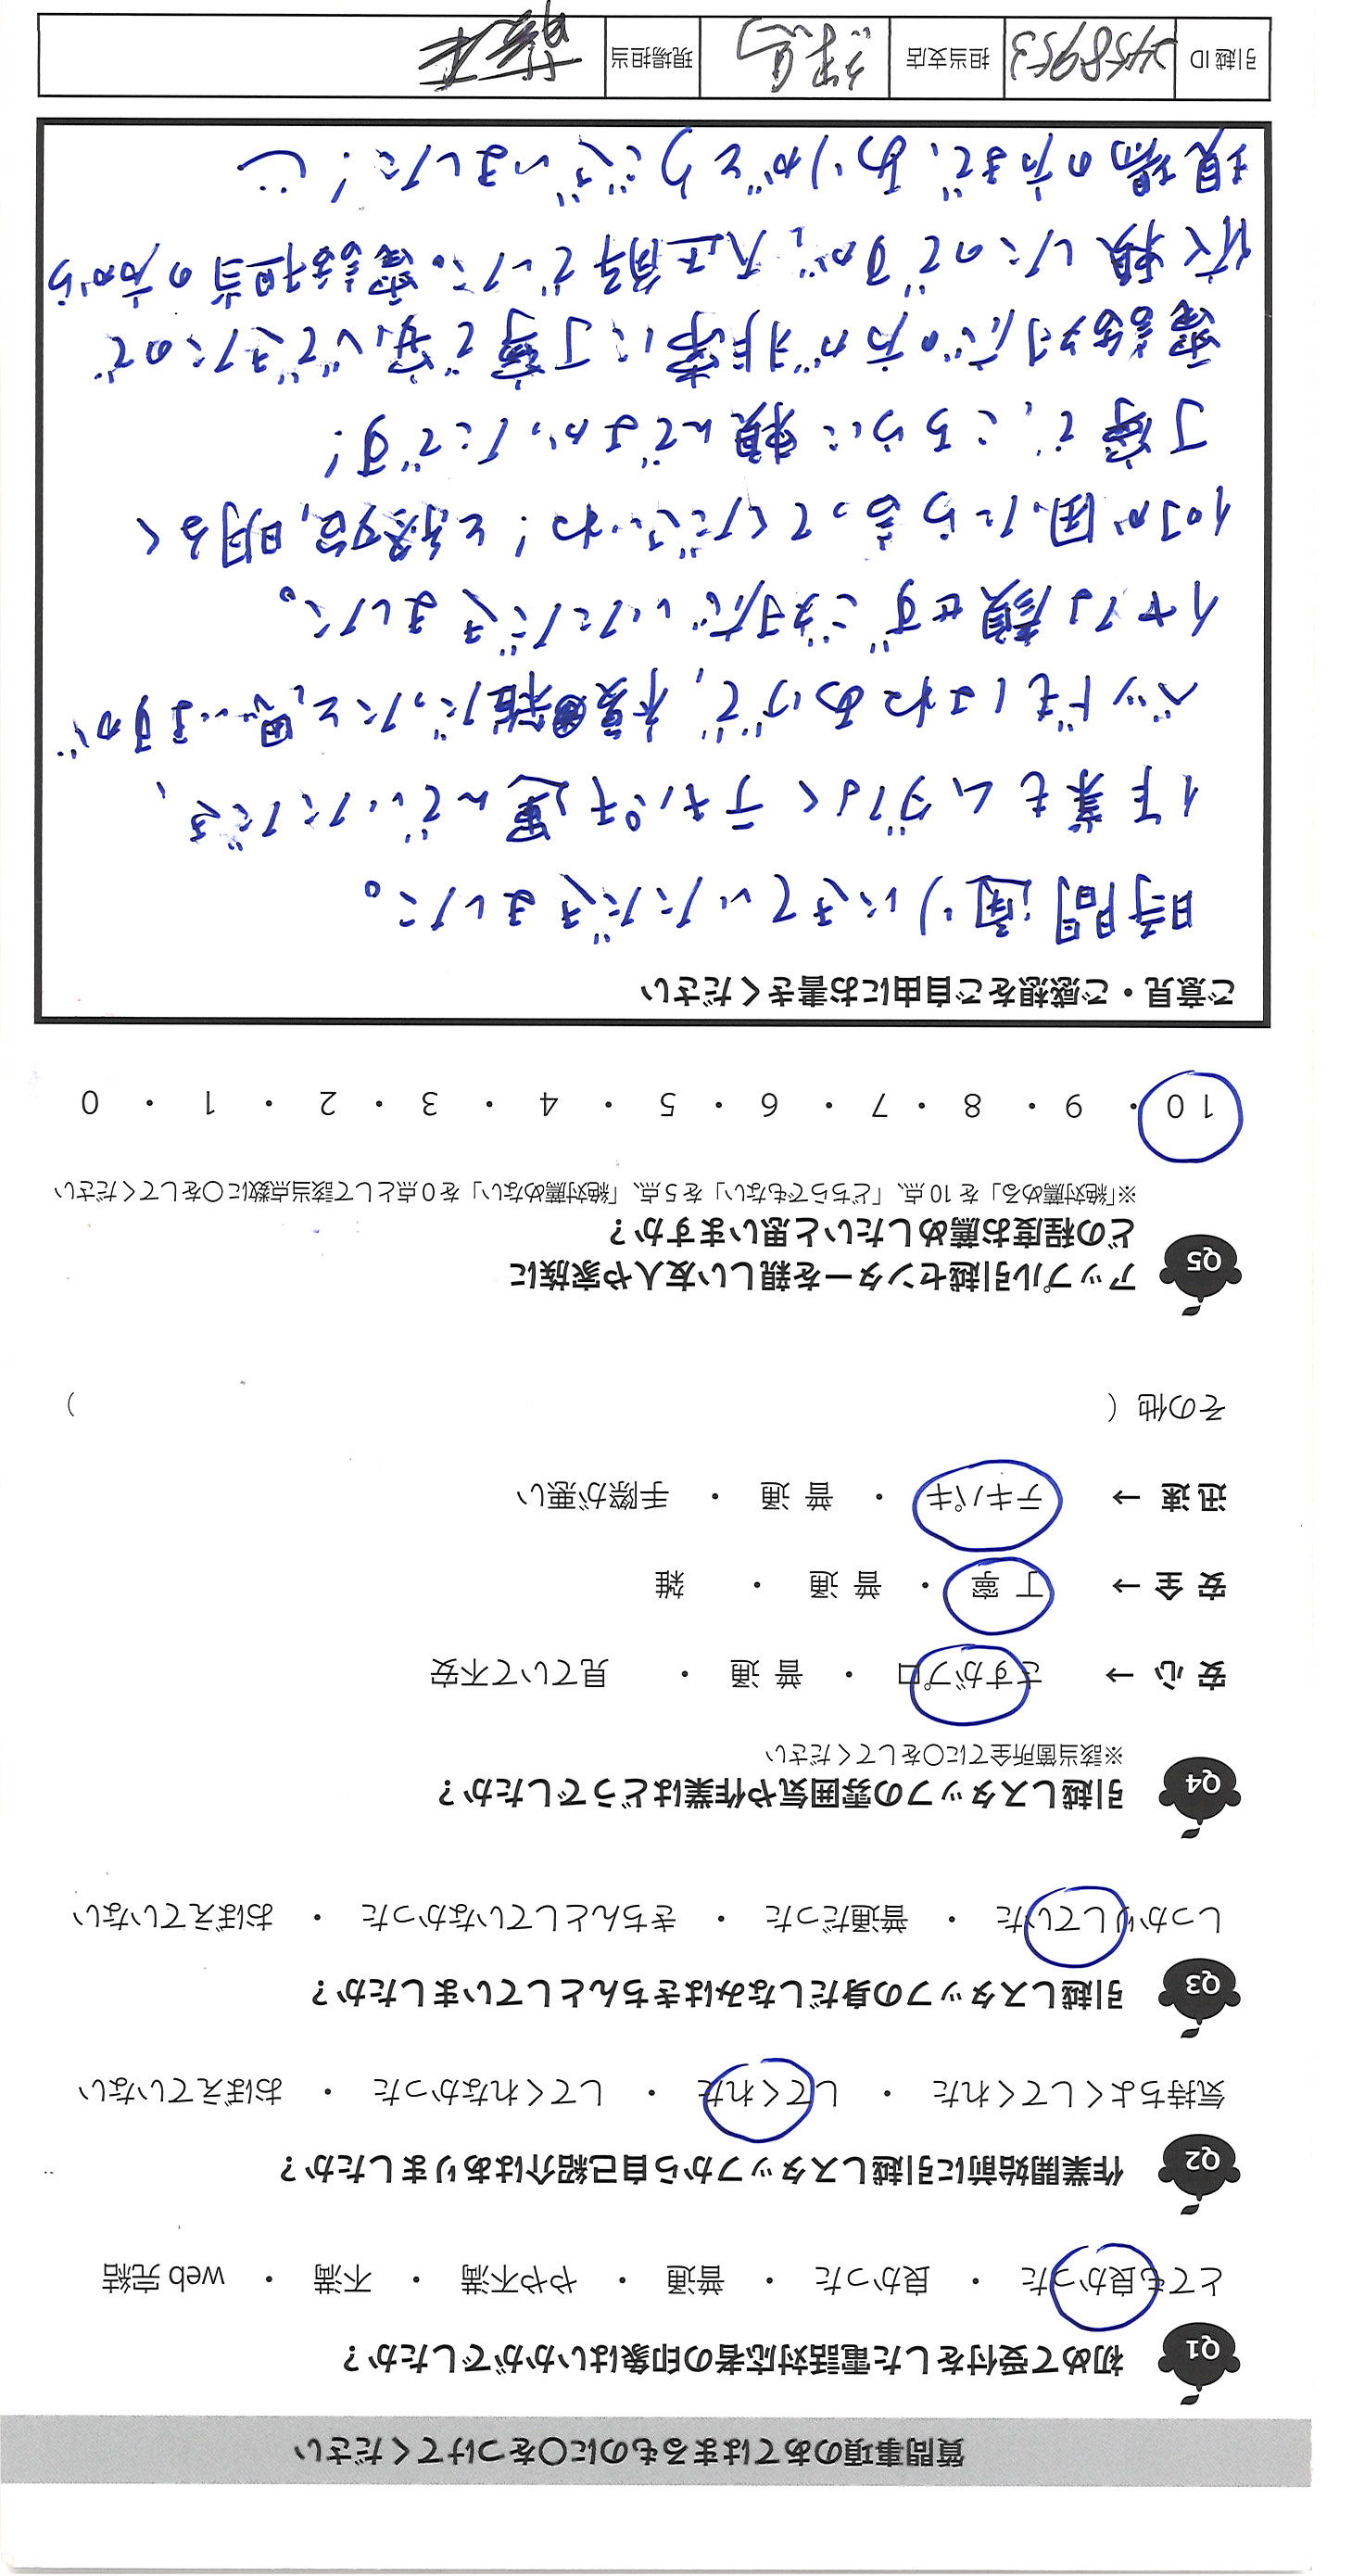 質問事項のあてはまるものに〇をつけてください
Q1 初めて受付をした電話対応者の印象はいかがでしたか？
とても良かった ・ 良かった ・ 普通 ・ やや不満 ・ 不満 ・ web 完結
Q2 作業開始前に引越しスタッフから自己紹介はありましたか？
気持ちよくしてくれた ・ してくれた ・ してくれなかった ・ おぼえていない
Q3 引越しスタッフの身だしなみはきちんとしていましたか？
しっかりしていた ・ 普通だった ・ きちんとしていなかった ・ おぼえていない
Q4 引越しスタッフの雰囲気や作業はどうでしたか？
※該当箇所全てに〇をしてください
安 心 → さすがプロ ・ 普 通 ・ 見ていて不安
安 全 → 丁 寧 ・ 普 通 ・ 雑
迅 速 → テキパキ ・ 普 通 ・ 手際が悪い
その他（ ）
Q5 アップル引越センターを親しい友人や家族に
どの程度お薦めしたいと思いますか？
※「絶対薦める」を 10 点、「どちらでもない」を 5 点、「絶対薦めない」を 0 点として該当点数に〇をしてください
10 ・ 9 ・ 8 ・ 7 ・ 6 ・ 5 ・ 4 ・ 3 ・ 2 ・ 1 ・ 0
ご意見・ご感想をご自由にお書きください
時間通りにきていただきました。
作業もムダなくテキパキ運んでいただき、
ベッドもはねあげで、複雑だったと思いますが
イヤな顔せずご対応いただきました。
何か困ったら言ってくださいね！と終始、明るく
丁寧で、こちらに頼んでよかったです！
電話対応の方が非常に丁寧で安心できたので
依頼したのですが、大正解でした。電話担当の方から
現場の方まで、ありがとうございました！
引越 ID 24589553 担当支店 練馬 現場担当